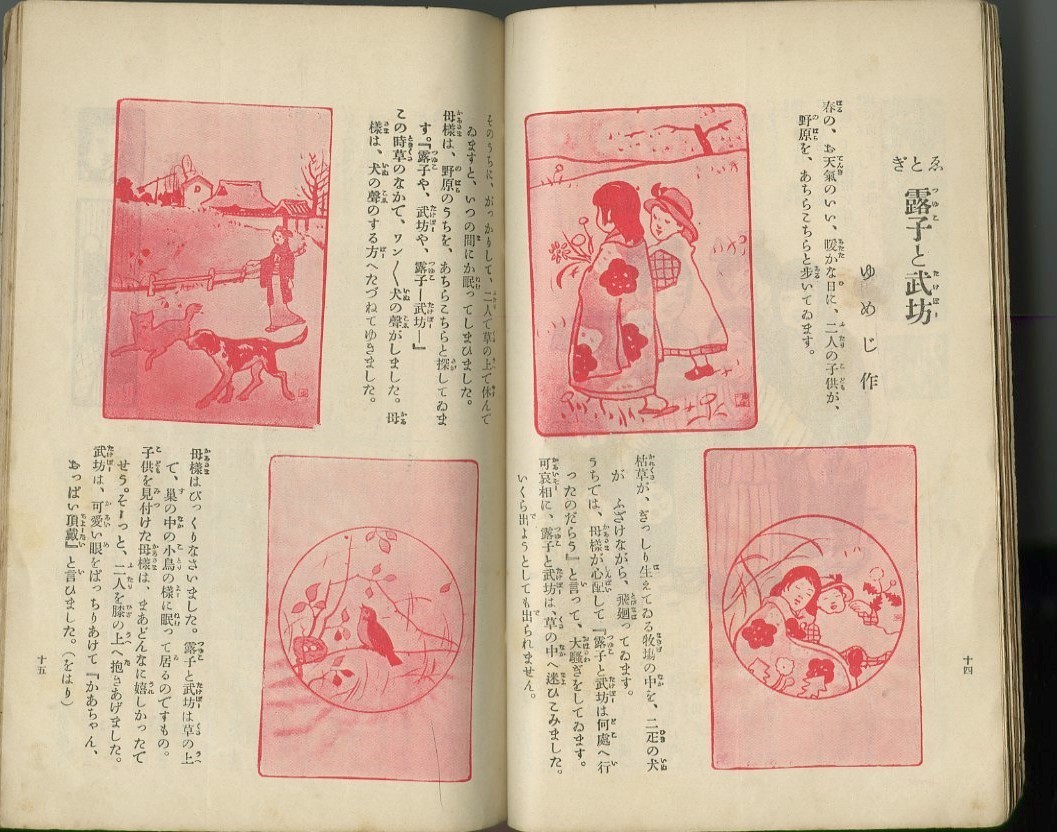 ゑとぎ
露子と武坊
ゆめじ作
春の、お天氣のいい、暖かな日に、二人の子供が、
野原を、あちらこちらと歩いてゐます。
枯草が、ぎっしり生えてゐる牧場の中を、二疋の犬
が ふざけながら、飛廻ってゐます。
うちでは、母樣が心配して『露子と武坊は何處へ行
ったのだらう』と言って、大騷ぎをしてゐます。
可哀相に、露子と武坊は、草の中へ迷ひこみました。
いくら出ようとしても出られません。
十四
そのうちに、がっかりして、二人で草の上で休んで
ゐますと、いつの間にか眠ってしまひました。
母樣は、野原のうちを、あちらこちらと探してゐま
す。『露子や、武坊や、露子ー武坊ー』
この時草のなかで、ワン〱犬の聲がしました。母
樣は、犬の聲のする方へたづねてゆきました。
母樣はびっくりなさいました。露子と武坊は草の上
て、巢の中の小鳥の樣に眠って居るのですもの。
子供を見付けた母樣は、まあどんなに嬉しかったで
せう。そーっと、二人を膝の上へ抱きあげました。
武坊は、可愛い眼をぱっちりあけて『かあちゃん、
おっぱい頂戴』と言ひました。(をはり)
十五